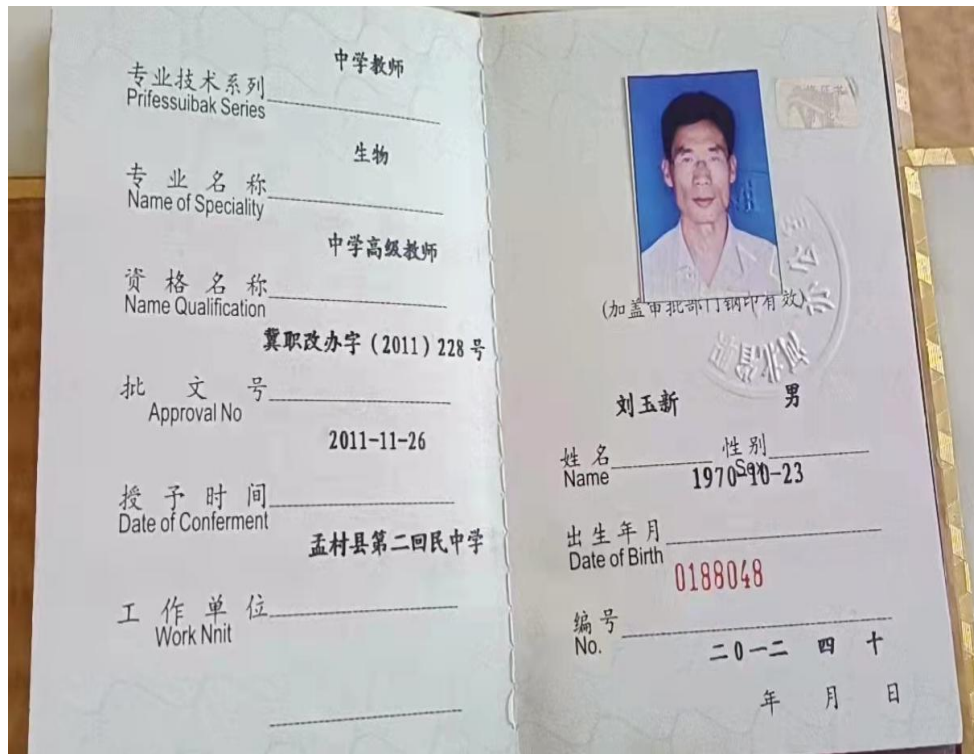 中学教师
专业技术系列
Prifessuibak Series
生物
专业名称
Name of Speciality
中学高级教师
资格名称
Name Qualification
冀职改办字（2011）228号
批文号
Approval No
2011-11-26
授予时间
Date of Conferment
孟村县第二回民中学
工作单位
Work Nnit
(加盖审批部门钢印有效)
刘玉新 男
姓名 性别
Name Sex
1970-10-23
出生年月
Date of Birth
0188048
编号
No.
二0一二 四 十
年 月 日